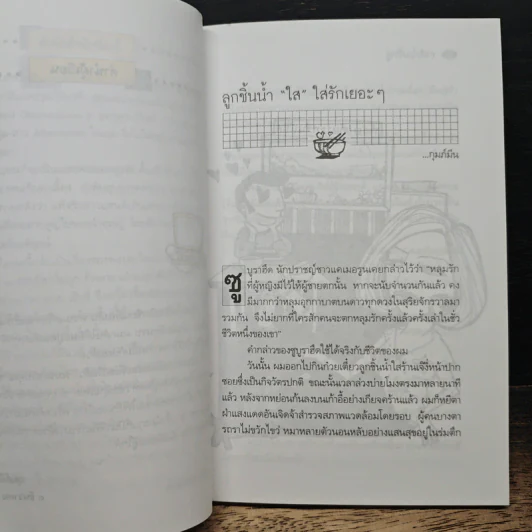 ลูกชิ้นน้ำ "ใส" ใส่รักเยอะ ๆ
...กุมภ์มีน
ซูบูราฮีด นักปราชญ์ชาวแคเมอรูนเคยกล่าวไว้ว่า "หลุมรัก
ที่ผู้หญิงมีไว้ให้ผู้ชายตกนั้น หากจะนับจำนวนกันแล้ว คง
มีมากกว่าหลุมอุกกาบาตบนดาวทุกดวงในสุริยจักรวาลมา
รวมกัน จึงไม่ยากที่ใครสักคนจะตกหลุมรักครั้งแล้วครั้งเล่าในชั่ว
ชีวิตหนึ่งของเขา"
คำกล่าวของซูบูราฮีดใช้ได้จริงกับชีวิตของผม
วันนั้น ผมออกไปกินก๋วยเตี๋ยวลูกชิ้นน้ำใสร้านเจ๊รั้งหน้าปาก
ซอยซึ่งเป็นกิจวัตรปกติ ขณะนั้นเวลาล่วงบ่ายโมงตรงมาหลายนาที
แล้ว หลังจากหย่อนก้นลงบนเก้าอี้อย่างเกียจคร้านแล้ว ผมก็หยีตา
ฝ่าแสงแดดอันเจิดจ้าสำรวจสภาพแวดล้อมโดยรอบ ผู้คนบางตา
รถราไม่ขวักไขว่ หมาหลายตัวนอนหลับอย่างแสนสุขอยู่ในร่มตึก